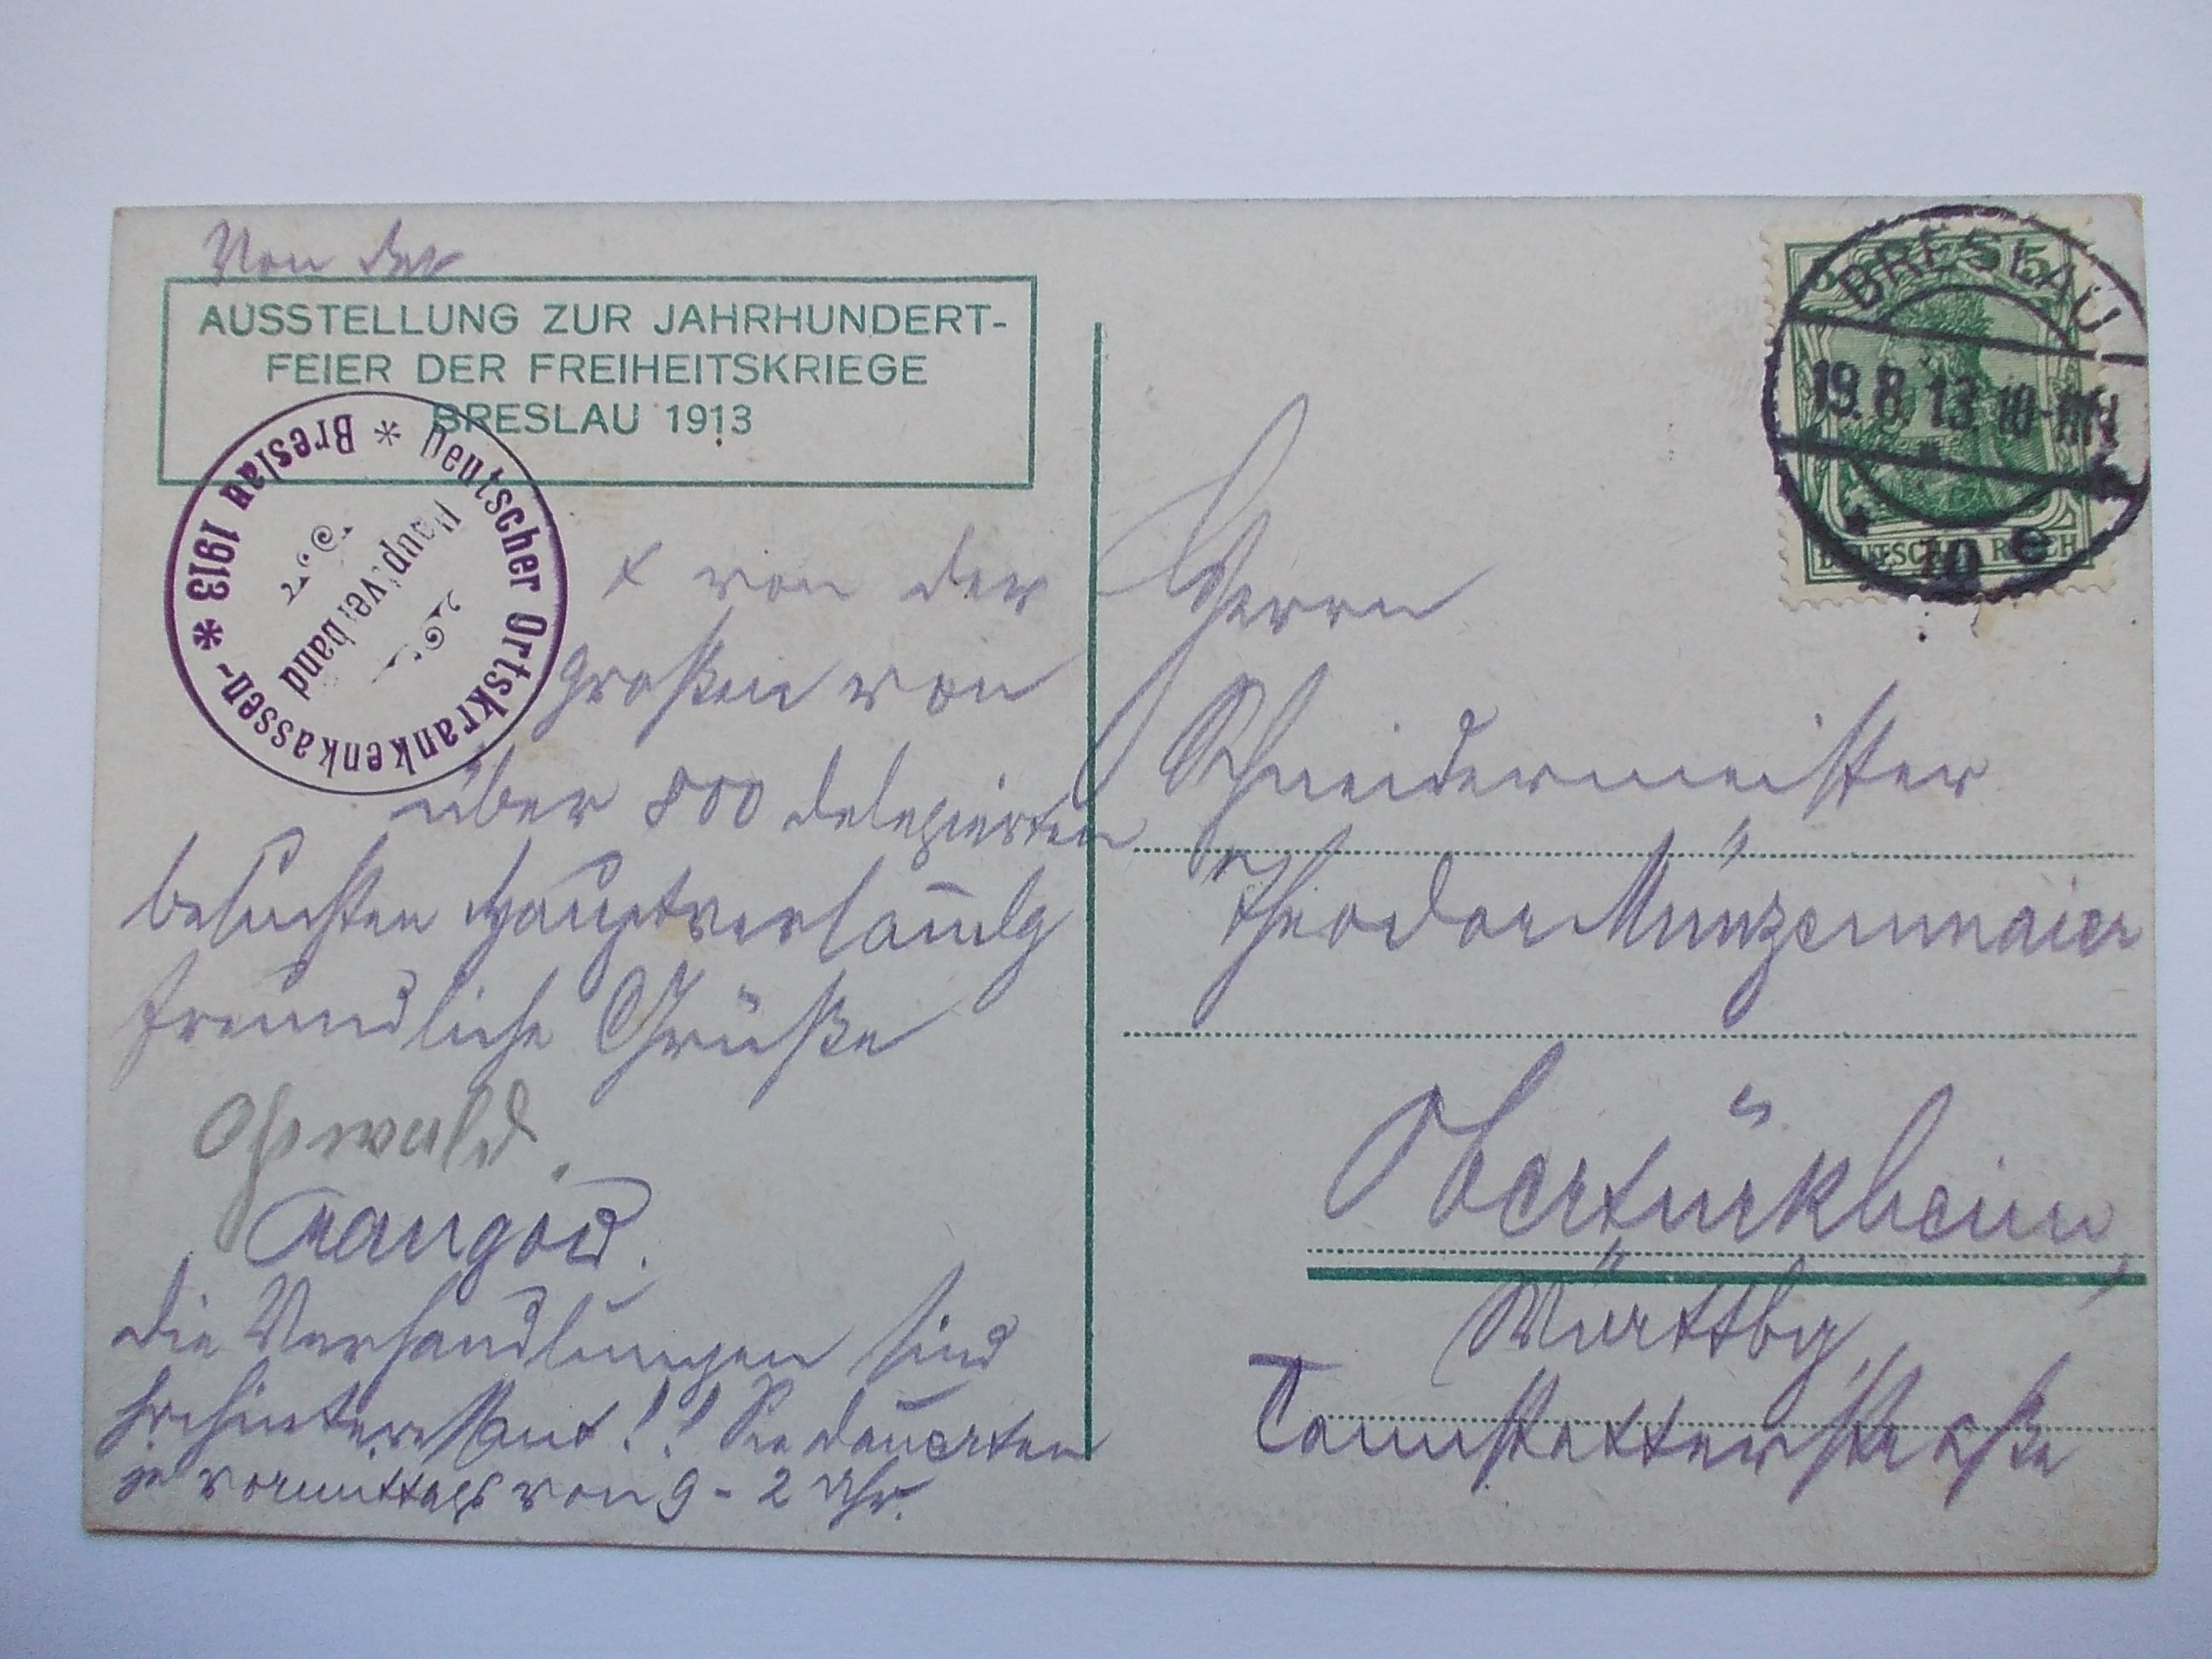 Von der
AUSSTELLUNG ZUR JAHRHUNDERT-
FEIER DER FREIHEITSKRIEGE
BRESLAU 1913
Hauptverband
Deutscher Ortskrankenkassen-
* Breslau 1913 *
x von der
großen von
über 800 delegierten
besuchten Hauptversam̅lg
freundliche Grüße
die Verhandlungen sind
hochinteressant!! Sie dauerten
je vormittags von 9 - 2 Uhr.
BRESLAU
19.8.13.10-11N
* 10 e
5 5
DEUTSCHES REICH
Herrn
Schneidermeister
Theodor Münzenmaier
Obertürkheim,
Württbg,
Cannstatterstraße